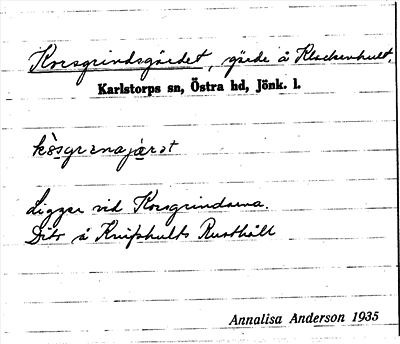 Korsgrindsgärdet, gärde å Klockenhult,
Karlstorps sn, Östra hd, Jönk. l.
Ligger vid Korsgrindarna.
Dito å Knifshults Rusthåll
Annalisa Anderson 1935